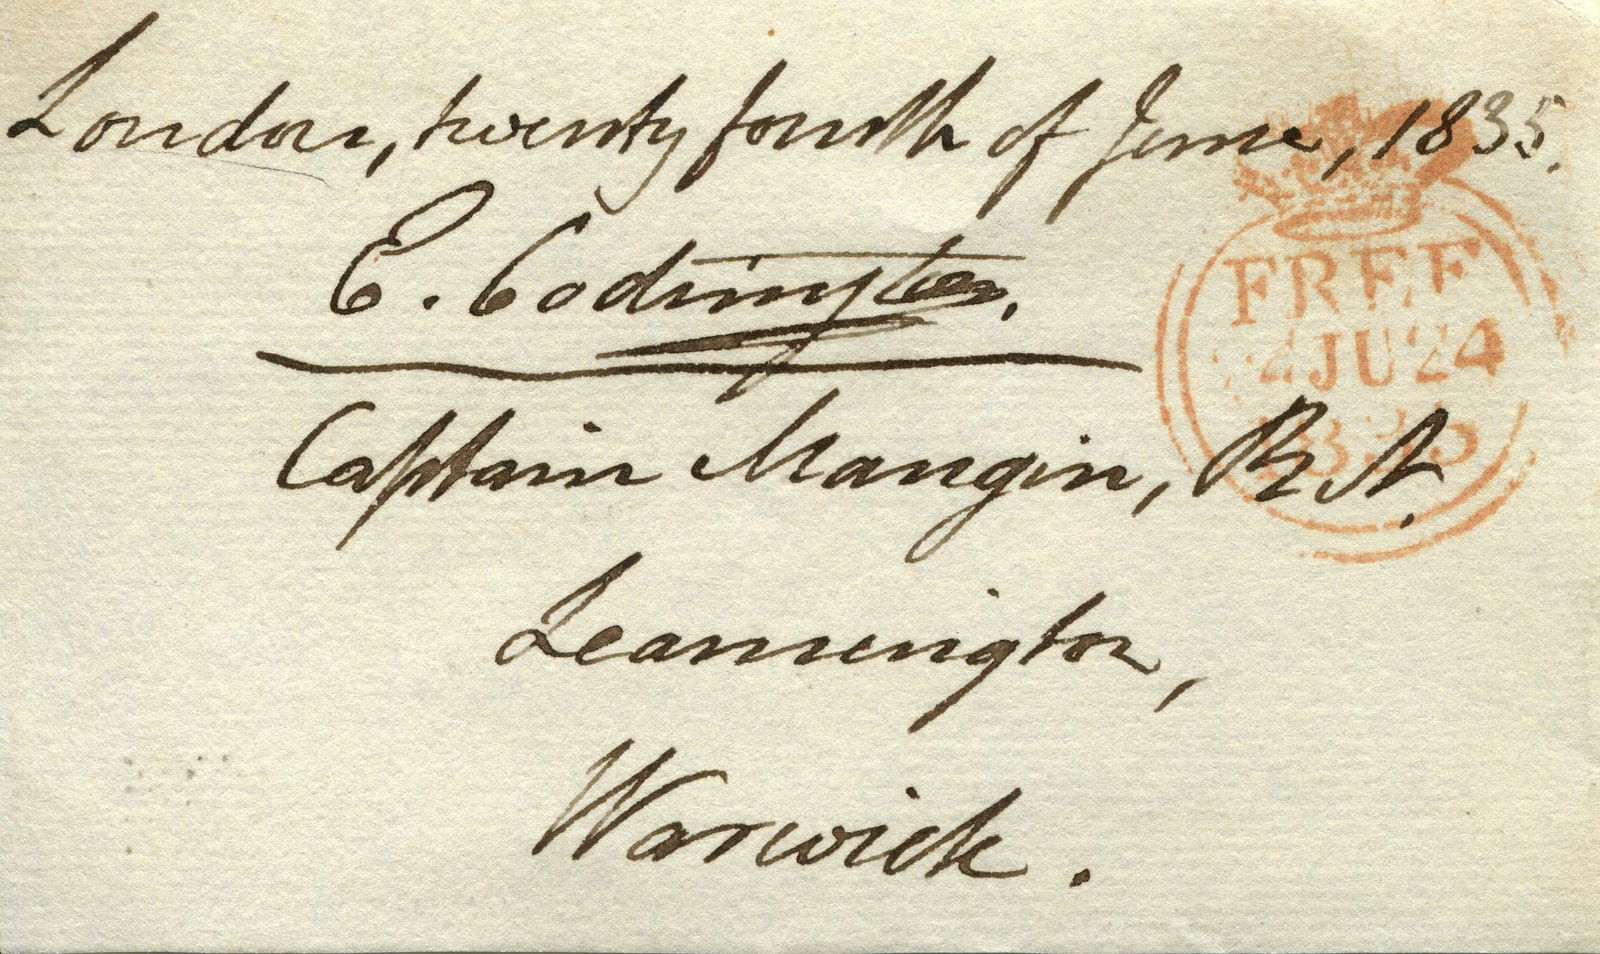 London, twenty fourth of June, 1835.
E. Codrington.
FREE
24 JU 24
1835
Captain Mangin, R.N.
Leamington,
Warwick.